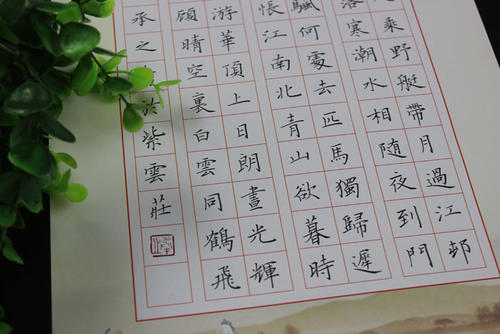 乘野艇帶月過江邨
落寒潮水相隨夜到門
飄何處去匹馬獨歸遲
悵江南北青山欲暮時
游華頂上日朗晝光輝
顧晴空裏白雲同鶴飛
承之於紫雲莊